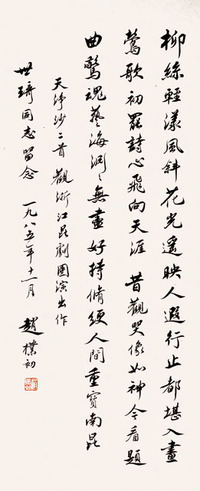 柳絲輕漾風斜花光遥映人遐行止都堪入畫
鶯歌初罷詩心飛向天涯 昔觀哭像如神今看題
曲驚魂藝海淵淵無盡好持脩綆人間重寶南昆
天淨沙二首 觀浙江昆劇團演出作
世璿同志留念 一九八五年十一月 趙樸初